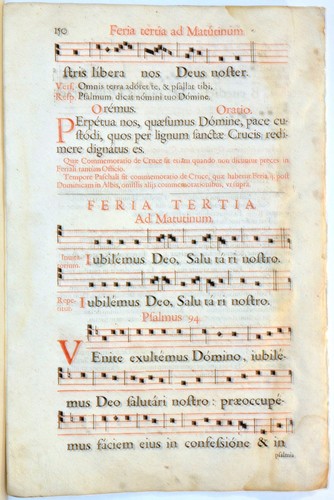 150 Feria tertia ad Matutinum
stris libera nos Deus noster.
Vers. Omnis terra adoret te, & psallat tibi.
Resp. Psalmum dicat nómini tuo Dómine.
Orémus. Oratio.
Perpétua nos, quæsumus Dómine, pace cu-
stódi, quos per lignum sanctæ Crucis redi-
mere dignátus es.
Quæ Commemoratio de Cruce fit etiam quando non dicuntur preces in
Feriali tantum Officio.
Tempore Paschali fit commemoratio de Cruce, quæ habetur Feria 2. post
Dominicam in Albis, omissis alijs commemorationibus, ut supra.
FERIA TERTIA
Ad Matutinum.
Iubilémus Deo, Salu tá ri nostro.
Iubilémus Deo, Salu tá ri nostro.
Psalmus 94.
VEnite exultémus Dómino, iubilé-
mus Deo salutári nostro: præoccupé-
mus fáciem eius in confessióne & in
psalmis